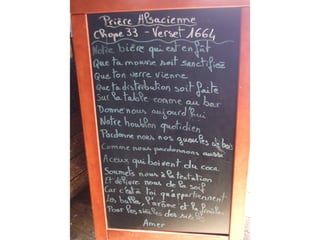 Prière Alsacienne
Chope 33 - Verset 1664
Notre bière qui est en fût
Que ta mousse soit sanctifiée
Que ton verre vienne
Que ta distribution soit faite
Sur la table comme au bar
Donne nous aujourd'hui
Notre houblon quotidien
Pardonne nous nos gueules de bois
Comme nous pardonnons aussi
A ceux qui boivent du coca
Soumets nous à la tentation
Et délivre nous de la soif
Car c'est à toi qu'appartiennent
Les bulles, l'arôme et la
Pour les siècles des siècles
Amer